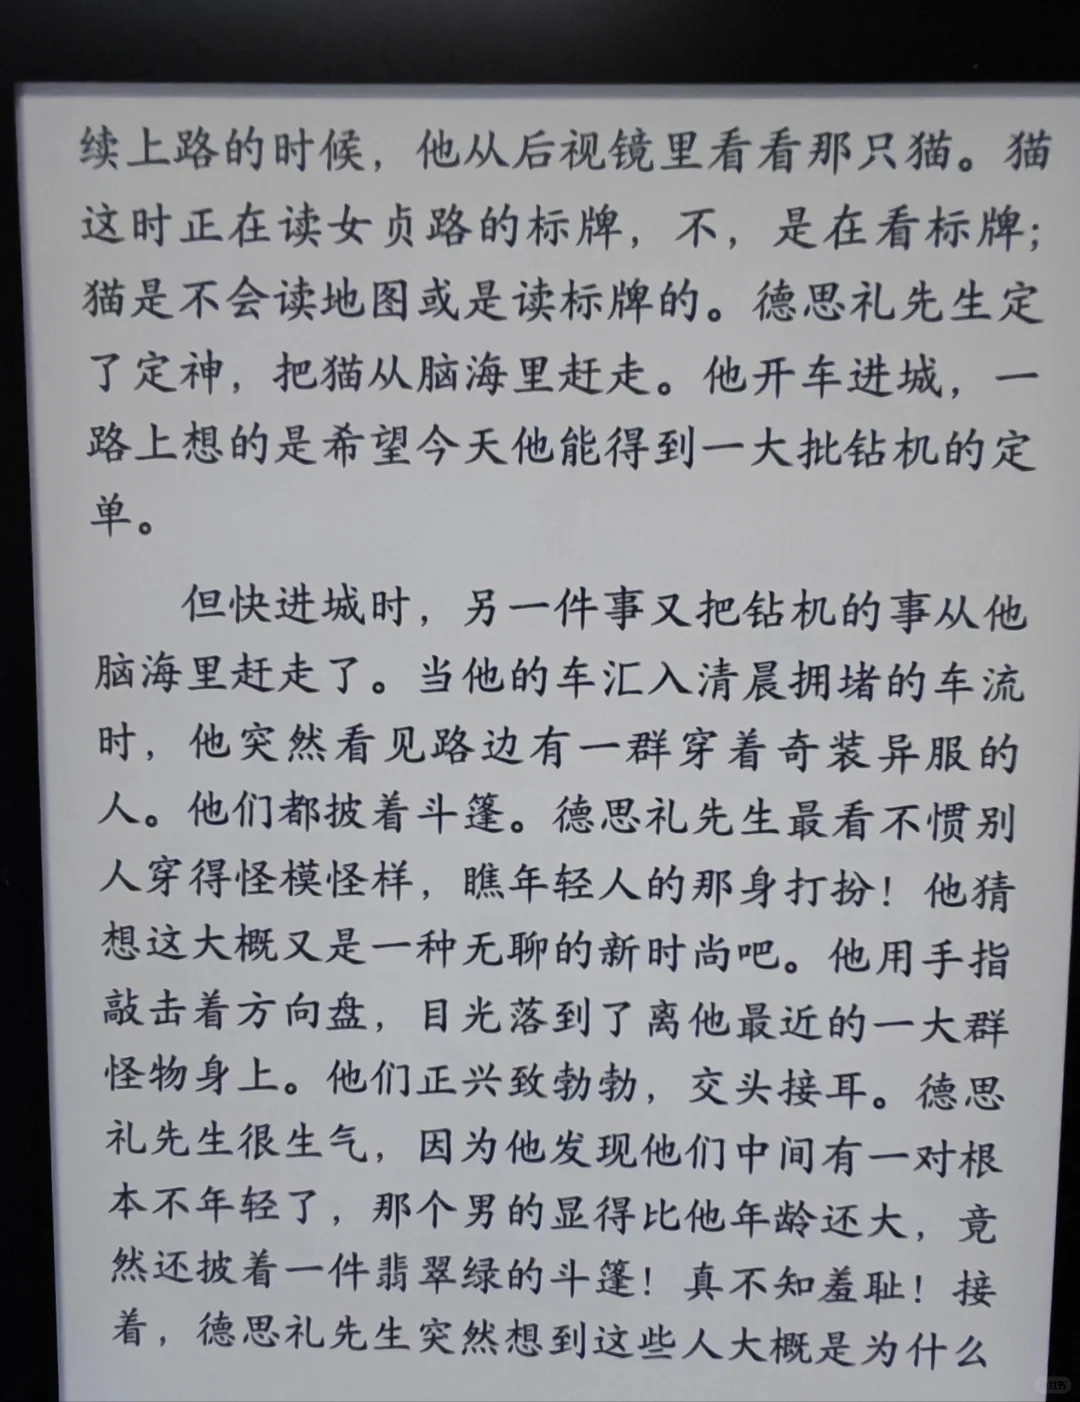 续上路的时候，他从后视镜里看看那只猫。猫
这时正在读女贞路的标牌，不，是在看标牌；
猫是不会读地图或是读标牌的。德思礼先生定
了定神，把猫从脑海里赶走。他开车进城，一
路上想的是希望今天他能得到一大批钻机的定
单。
但快进城时，另一件事又把钻机的事从他
脑海里赶走了。当他的车汇入清晨拥堵的车流
时，他突然看见路边有一群穿着奇装异服的
人。他们都披着斗篷。德思礼先生最看不惯别
人穿得怪模怪样，瞧年轻人的那身打扮！他猜
想这大概又是一种无聊的新时尚吧。他用手指
敲击着方向盘，目光落到了离他最近的一大群
怪物身上。他们正兴致勃勃，交头接耳。德思
礼先生很生气，因为他发现他们中间有一对根
本不年轻了，那个男的显得比他年龄还大，竟
然还披着一件翡翠绿的斗篷！真不知羞耻！接
着，德思礼先生突然想到这些人大概是为什么